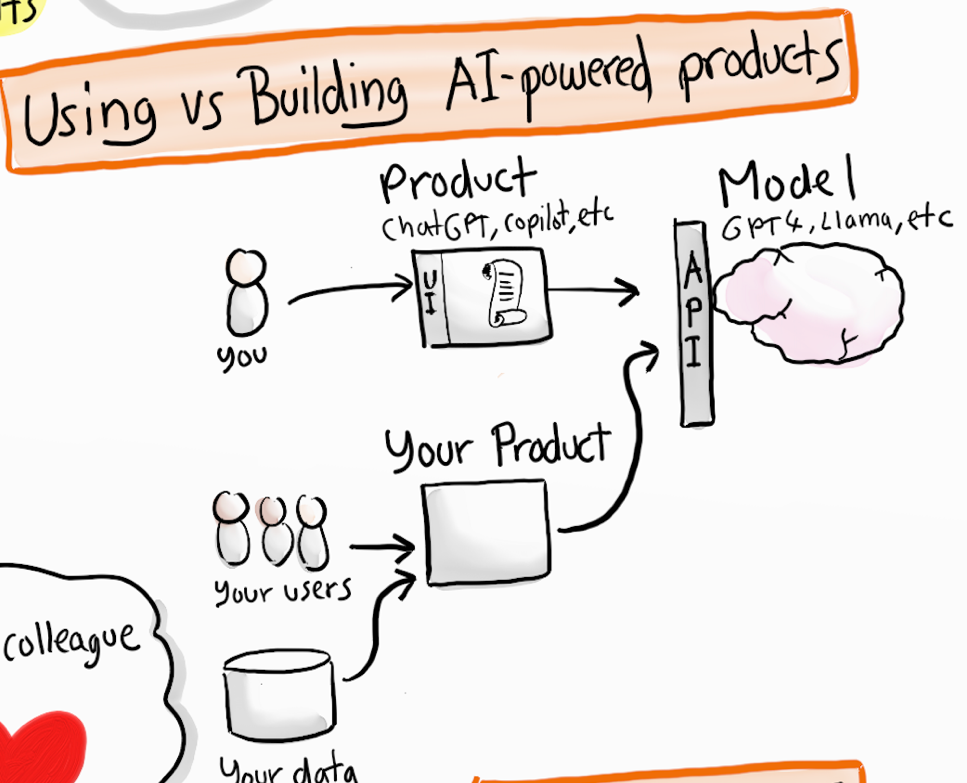 Using vs Building AI-powered products
Product
ChatGPT, copilot, etc
Model
GPT4, Llama, etc
UI
API
you
Your Product
Your users
colleague
Your data